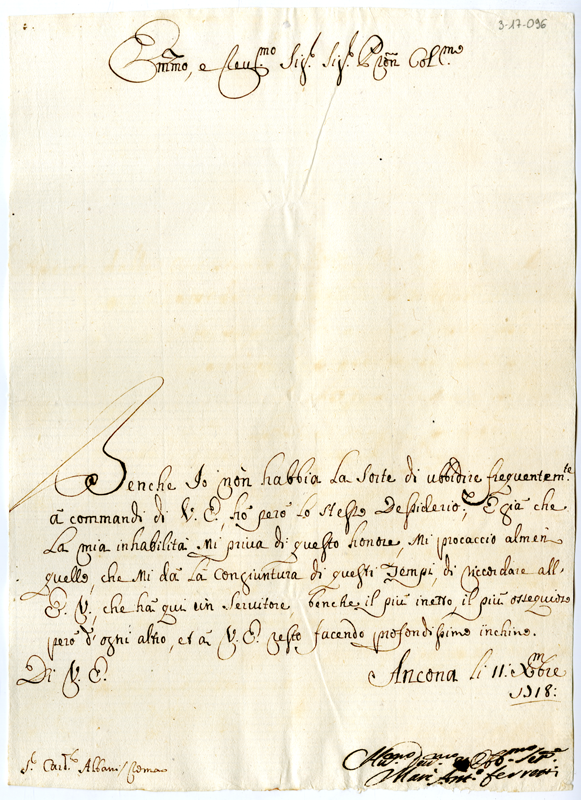 3-17-096
Emmo, e Reu.mo Sig.r Sig.r Pron Col.mo
Benche Io non habbia La Sorte di ubbidire frequentem.te
à commandi di V. E., hò però Lo stesso Desiderio, E già che
La mia inhabilità Mi priua di questo honore, Mi procaccio almen
quello, che Mi dà La Congiuntura di questi Tempi di riccordare all'
E. V., che hà qui un Seruitore, benche il più inetto, il più ossequioso
però d'ogni altro, et à V. E. resto facendo profondissimo inchino.
Di V. E. Ancona li 11. Xmbre
1718:
S.r Car.l Albani / Roma
Hum.o Diu.mo Obb.mo Ser.e
Marc' Ant.o Ferretti